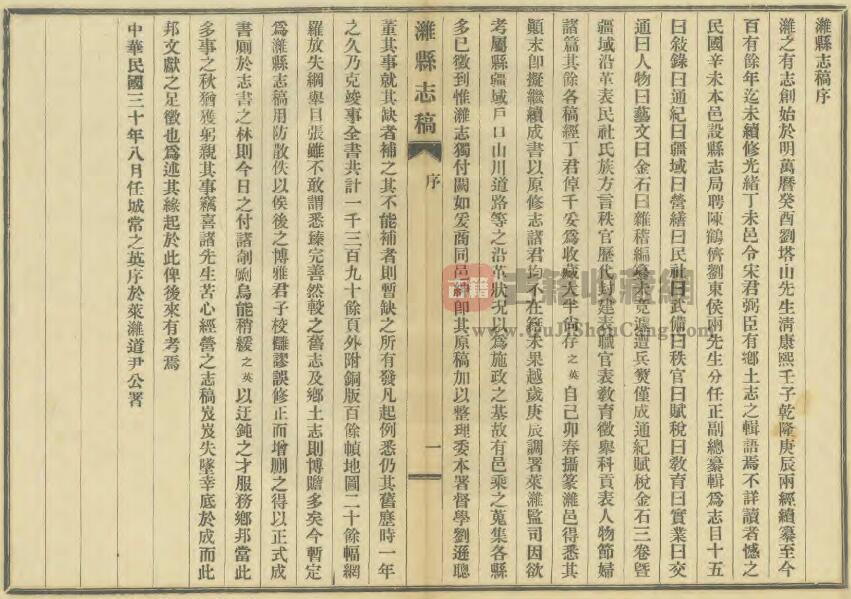 濰縣志稿序
濰之有志創始於明萬曆癸酉劉塔山先生清康熙壬子乾隆庚辰兩經續纂至今
百有餘年迄未續修光緒丁未邑令宋君弼臣有鄉土志之輯語焉不詳讀者憾之
民國辛未本邑設縣志局聘陳鶴儕劉東侯兩先生分任正副總纂輯為志目十五
曰敘錄曰通紀曰疆域曰營繕曰民社曰武備曰秩官曰賦稅曰教育曰實業曰交
通曰人物曰藝文曰金石曰雜稽編纂未竟遽遭兵燹僅成通紀賦稅金石三卷暨
疆域沿革表民社氏族方言秩官歷代封建表職官表教育徵舉科貢表人物節婦
諸篇其餘各稿經丁君倬千妥為收藏大半尚存之英自己卯春攝篆濰邑得悉其
顛末即擬繼續成書以原修志諸君均不在籍未果越歲庚辰調署萊濰監司因欲
考屬縣疆域戶口山川道路等之沿革狀況以為施政之基故有邑乘之蒐集各縣
多已徵到惟濰志獨付闕如爰商同邑紳即其原稿加以整理委本署督學劉遜聰
濰縣志稿 序 一
董其事就其缺者補之其不能補者則暫缺之所有發凡起例悉仍其舊歷時一年
之久乃克竣事全書共計一千三百九十餘頁外附銅版百餘幀地圖二十餘幅網
羅放失綱舉目張雖不敢謂悉臻完善然較之舊志及鄉土志則博贍多矣今暫定
為濰縣志稿用防散佚以俟後之博雅君子校讎謬誤修正而增刪之得以正式成
書廁於志書之林則今日之付諸剞劂烏能稍緩之英以迂鈍之才服務鄉邦當此
多事之秋猶獲躬親其事竊喜諸先生苦心經營之志稿岌岌失墜幸底於成而此
邦文獻之足徵也為述其緣起於此俾後來有考焉
中華民國三十年八月任城常之英序於萊濰道尹公署
古籍
古籍收藏網
www.GuJiShouCang.com